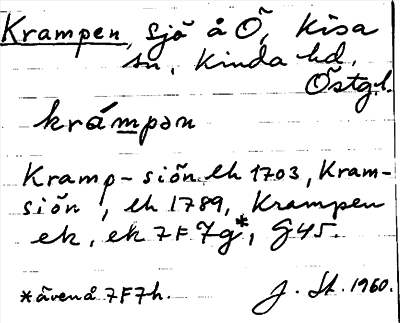 Krampen, sjö å Ö, Kisa
sn, Kinda hd,
Östgl.
krámpən
Kramp-siön lh 1703, Kram-
siön, lh 1789, Krampen
ek, ek 7F7g*, G45.
*även å 7F7h.
J. St. 1960.